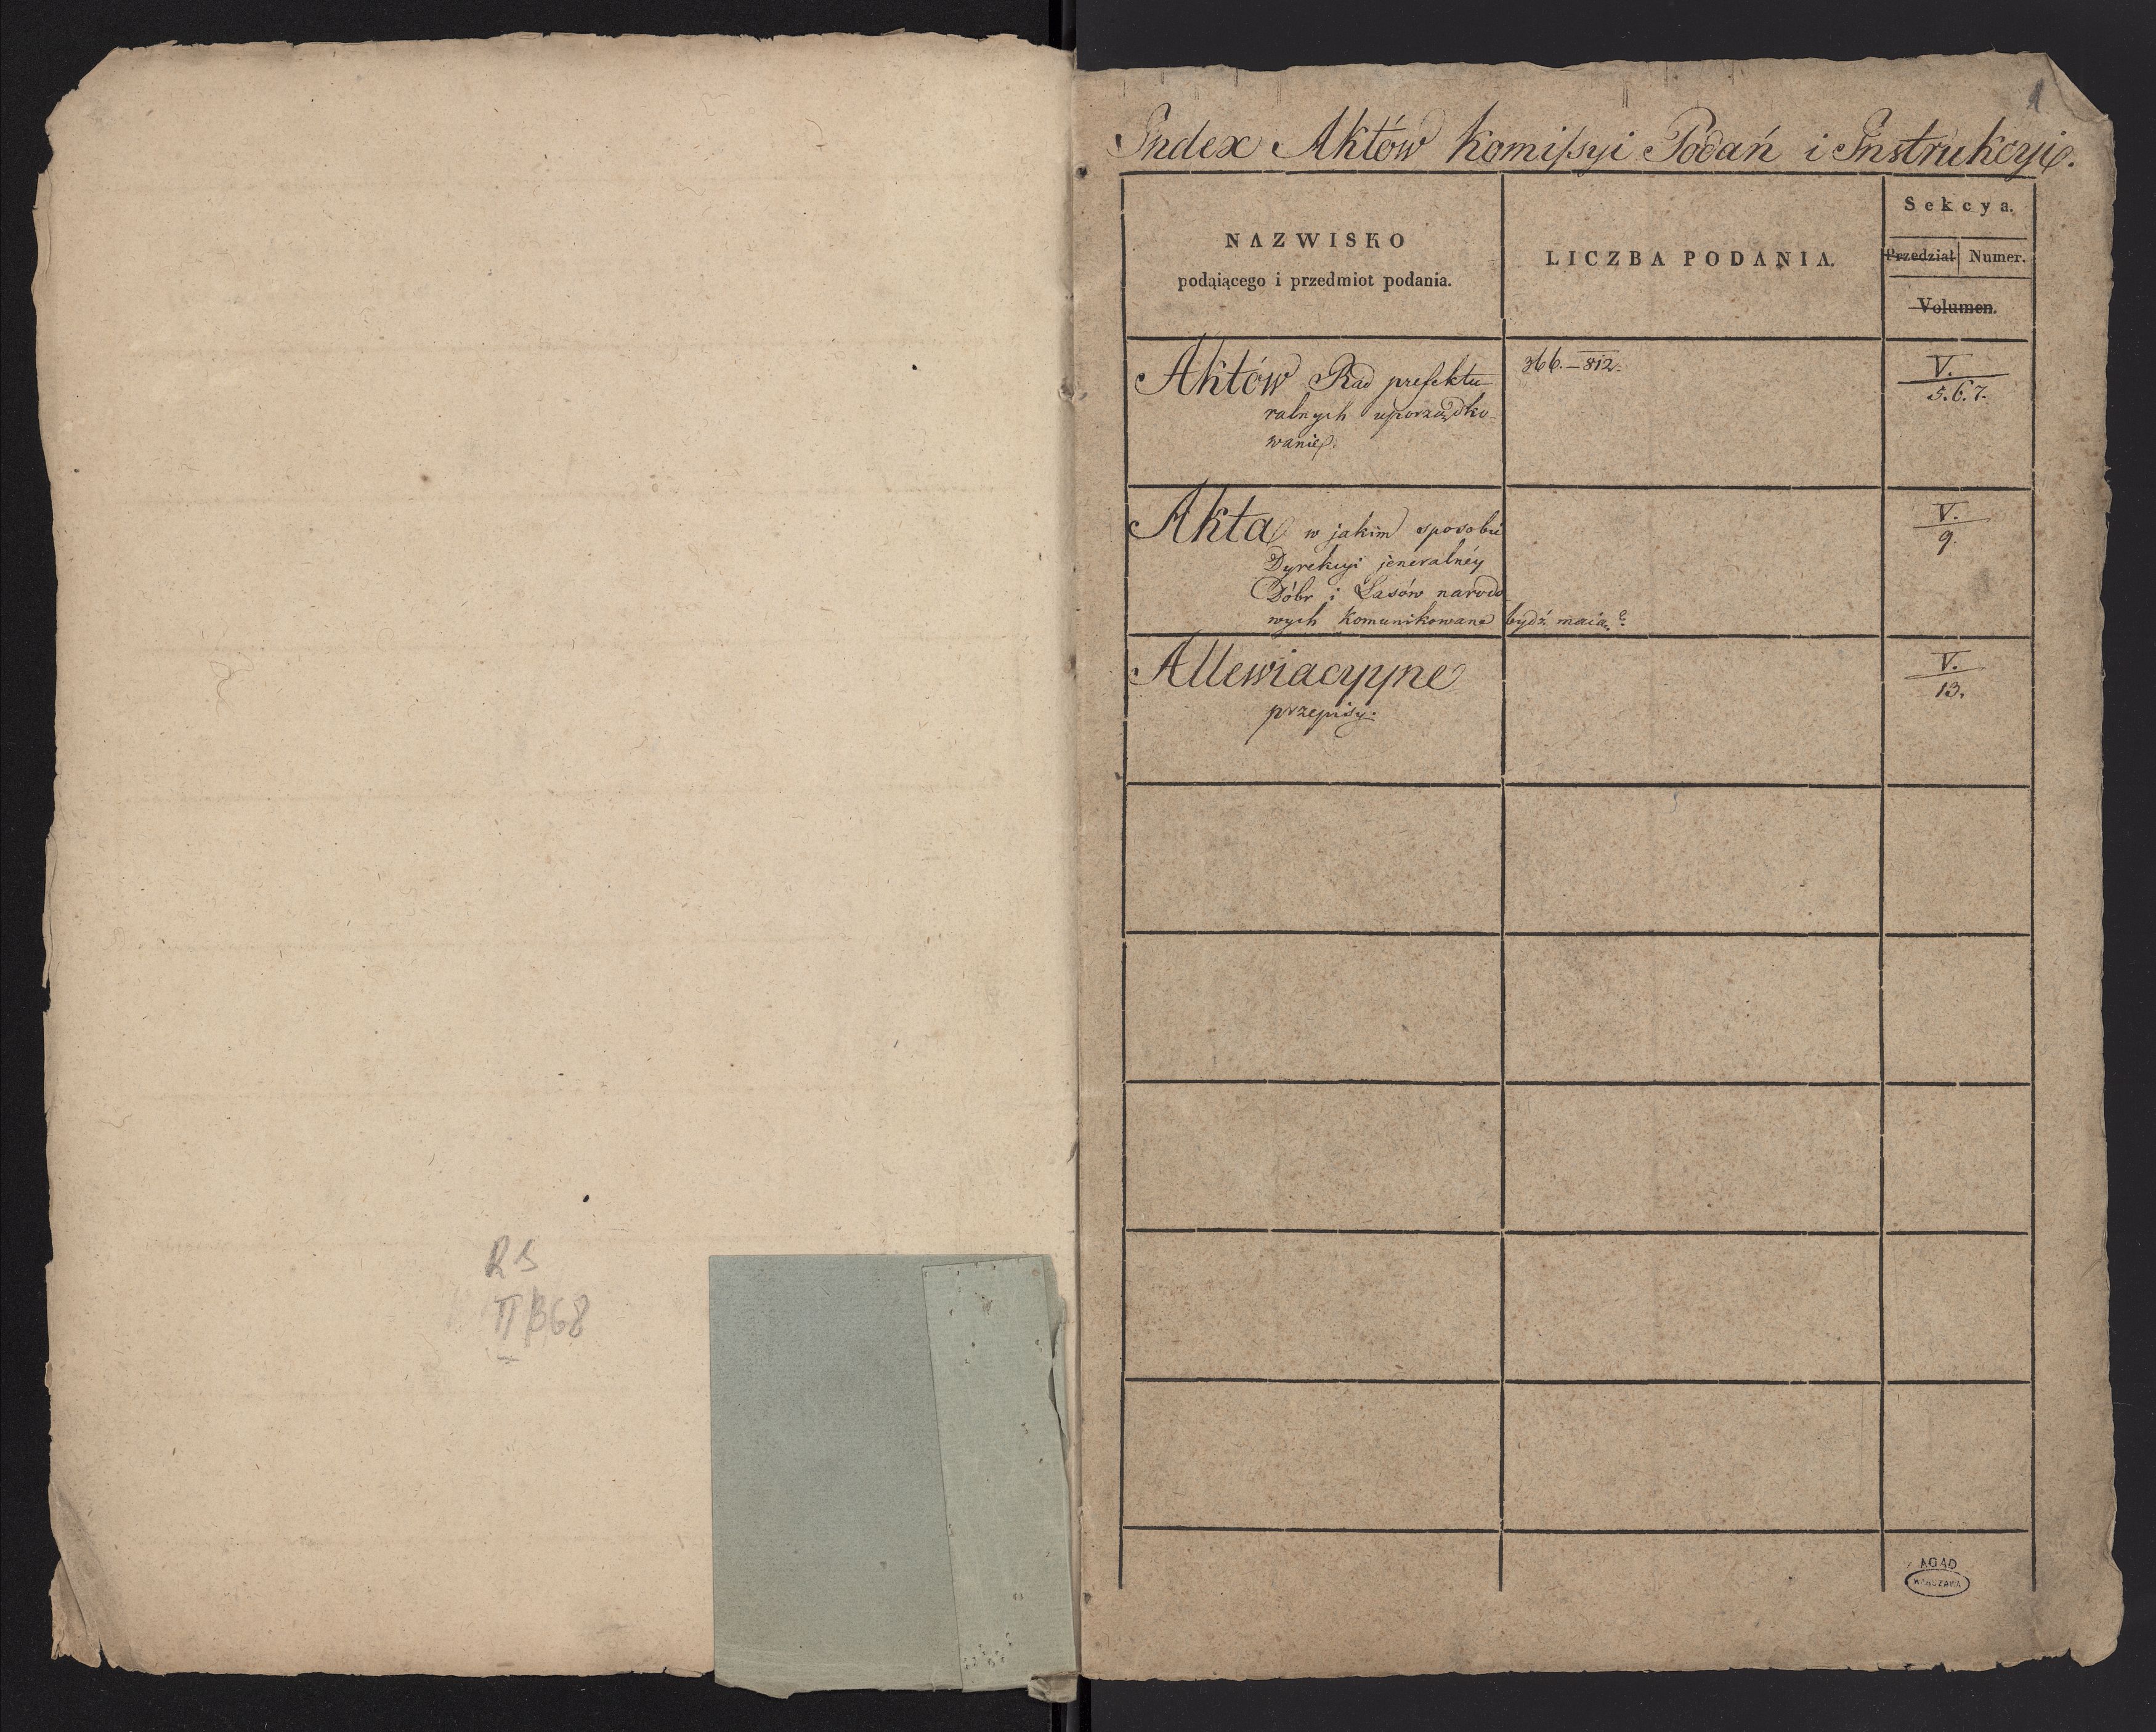 RS
II/368
1
Index Aktów Komißyi Podań i Instrukcyi.
NAZWISKO
podąiącego i przedmiot podania.
LICZBA PODANIA.
Sekcya.
Przedział Numer.
Volumen.
Aktów Rad prefektu-
ralnych uporządko-
wanie.
366.-812.
V.
5.6.7.
Akta w jakim sposobie
Dyrekcyi jeneralnéy
Dóbr i Lasów narodo-
wych komunikowane bydź maią?
V.
9.
Allewiacyyne
przepisy.
V.
13.
AGAD
WARSZAWA